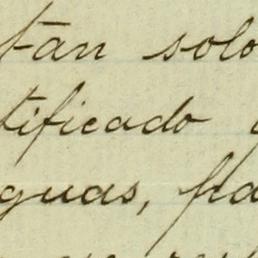 tan solo
tificado
guas, fra